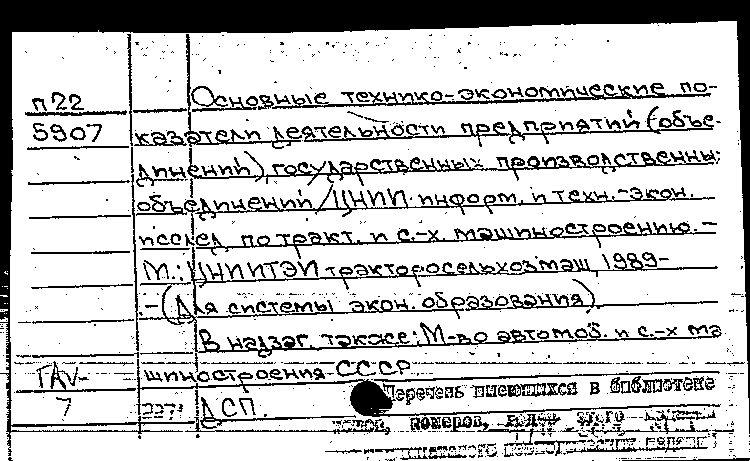 п22 Основные технико-экономические по-
5907 казатели деятельности предприятий (объе-
динений), государственных производственных
объединений / ЦНИИ информ. и техн.-экон.
исслед. по тракт. и с.-х. машиностроению. -
М.: ЦНИИТЭИтракторосельхозмаш, 1989-
.-(Для системы экон. образования)
В надзаг. также: М-во автомоб. и с.-х ма
шиностроения СССР
ГАУ-
7 ДСП.
Перечень имеющихся в библиотеке
томов, номеров, этого